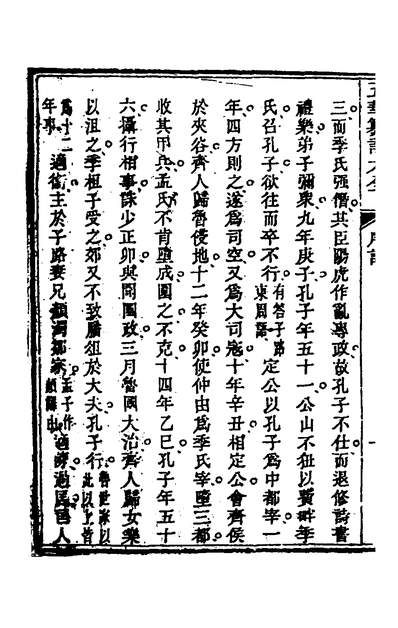 三而季氏强僭其臣陽虎作亂專政故孔子不仕而退修詩書
禮樂弟子彌衆九年庚子孔子年五十一公山不狃以費畔季
氏召孔子欲往而卒不行有答子路東周語定公以孔子爲中都宰一
年四方則之遂爲司空又爲大司寇十年辛丑相定公會齊侯
於夾谷齊人歸魯侵地十二年癸卯使仲由爲季氏宰墮三都
收其甲兵孟氏不肯墮成圍之不克十四年乙巳孔子年五十
六攝行相事誅少正卯與聞國政三月魯國大治齊人歸女樂
以沮之季桓子受之郊又不致膰俎於大夫孔子行魯世家以此以上皆
爲十二年事適衞主於子路妻兄顏濁鄒家孟子作顏讎由適陳過匡匡人